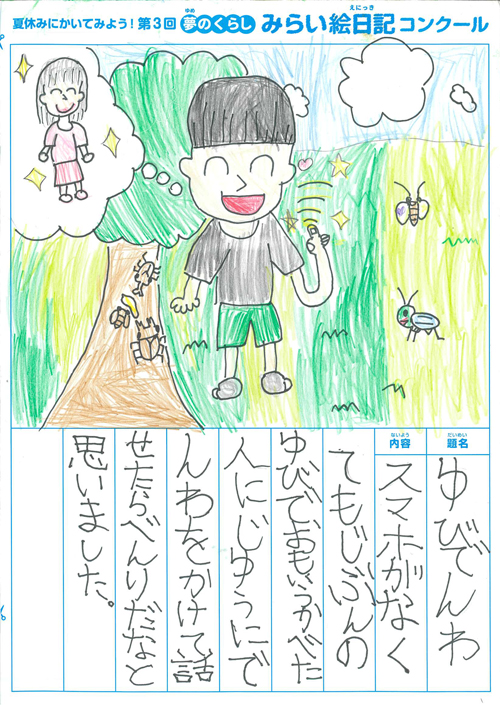 夏休みにかいてみよう!第3回夢のくらしみらい絵日記コンクール
ゆめ
えにっき
だいめい
題名
ゆびでんわ
ないよう
内容
スマホがなく
てもじぶんの
ゆびでおもいうかべた
人にじゆうにで
んわをかけて話
せたらべんりだなと
思いました。